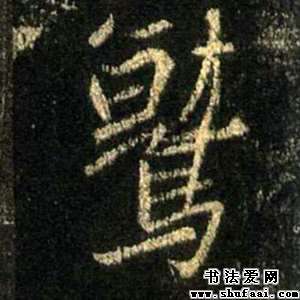 鷲
书法爱网
www.shufaai.com